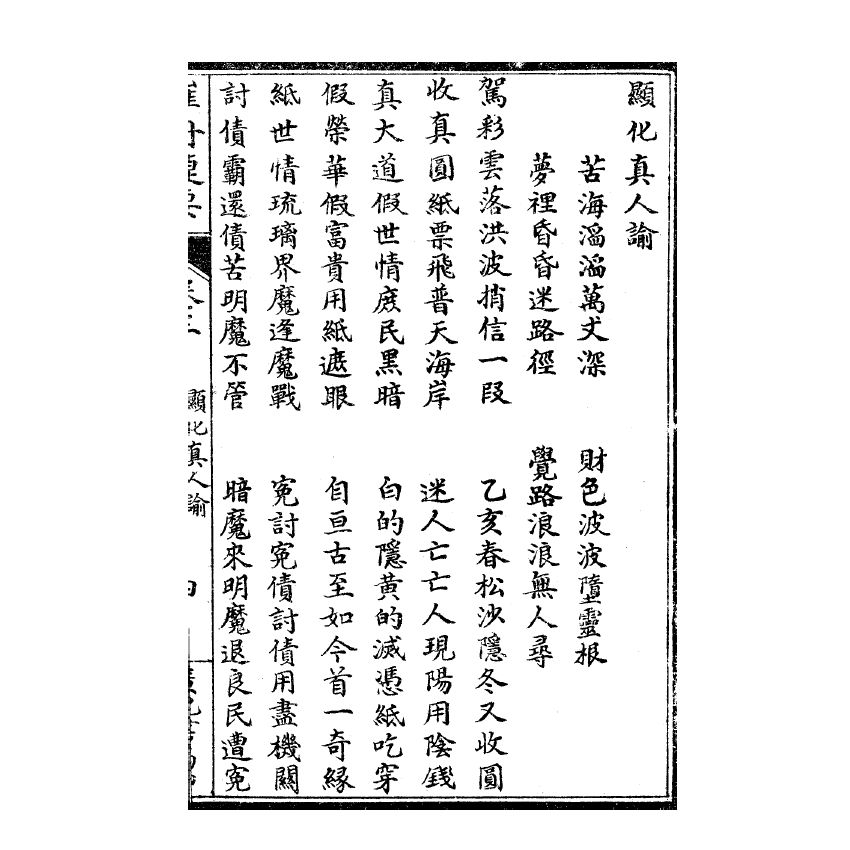 顯化真人諭
苦海滔滔萬丈深　財色波波墮靈根
夢裡昏昏迷路徑　覺路浪浪無人尋
駕彩雲落洪波捎信一段　乙亥春松沙隱冬又收圓
收真圓紙票飛普天海岸　迷人亡亡人現陽用陰錢
真大道假世情庶民黑暗　白的隱黃的滅憑紙吃穿
假榮華假富貴用紙遮眼　自亘古至如今首一奇緣
紙世情琉璃界魔逢魔戰　冤討冤債討債用盡機關
討債霸還債苦明魔不管　暗魔來明魔退良民遭冤
顯化真人諭